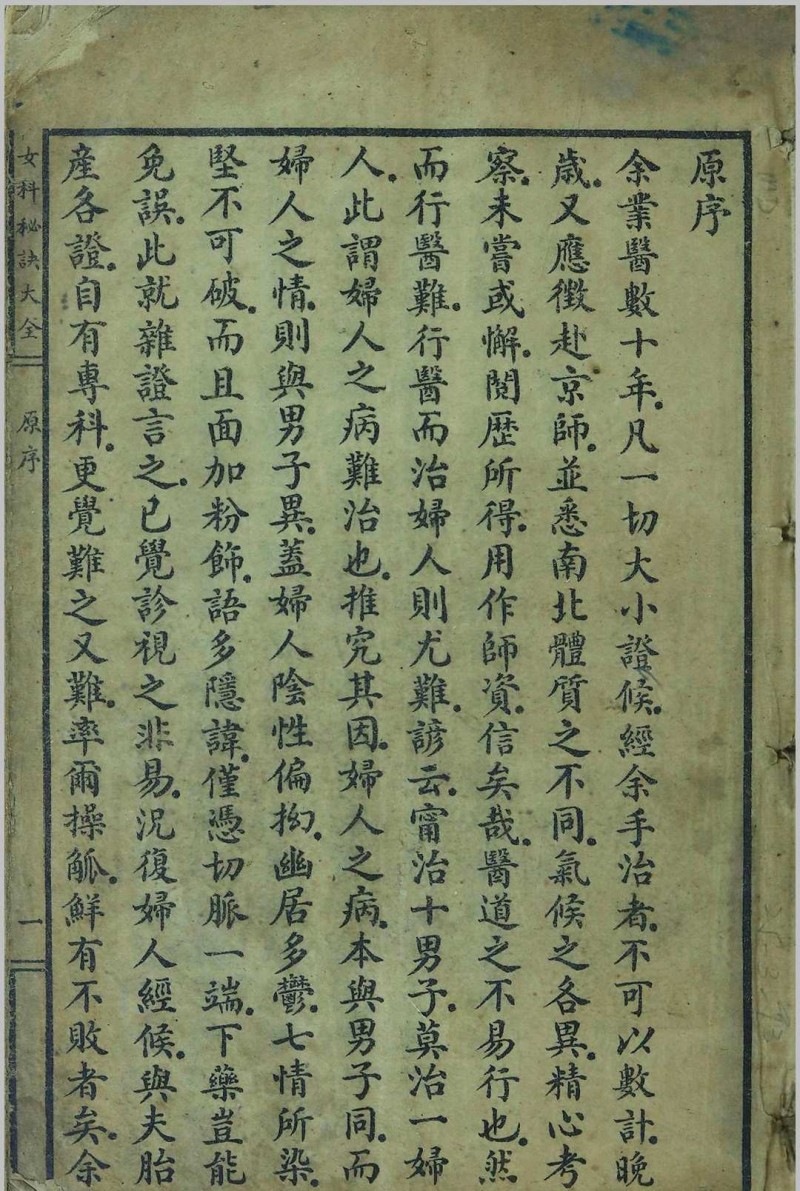 原序
余業醫數十年.凡一切大小證候.經余手治者.不可以數計.晚
歲.又應徵赴京師.並悉南北體質之不同.氣候之各異.精心考
察.未嘗或懈.閱歷所得.用作師資.信矣哉.醫道之不易行也.然
而行醫難.行醫而治婦人則尤難.諺云.甯治十男子.莫治一婦
人.此謂婦人之病難治也.推究其因.婦人之病.本與男子同.而
婦人之情.則與男子異.蓋婦人陰性偏拗.幽居多鬱.七情所染.
堅不可破.而且面加粉飾.語多隱諱.僅憑切脈一端.下藥豈能
免誤.此就雜證言之.已覺診視之非易.況復婦人經候.與夫胎
產各證.自有專科.更覺難之又難.率爾操觚.鮮有不敗者矣.余
女科秘訣大全
原序
一